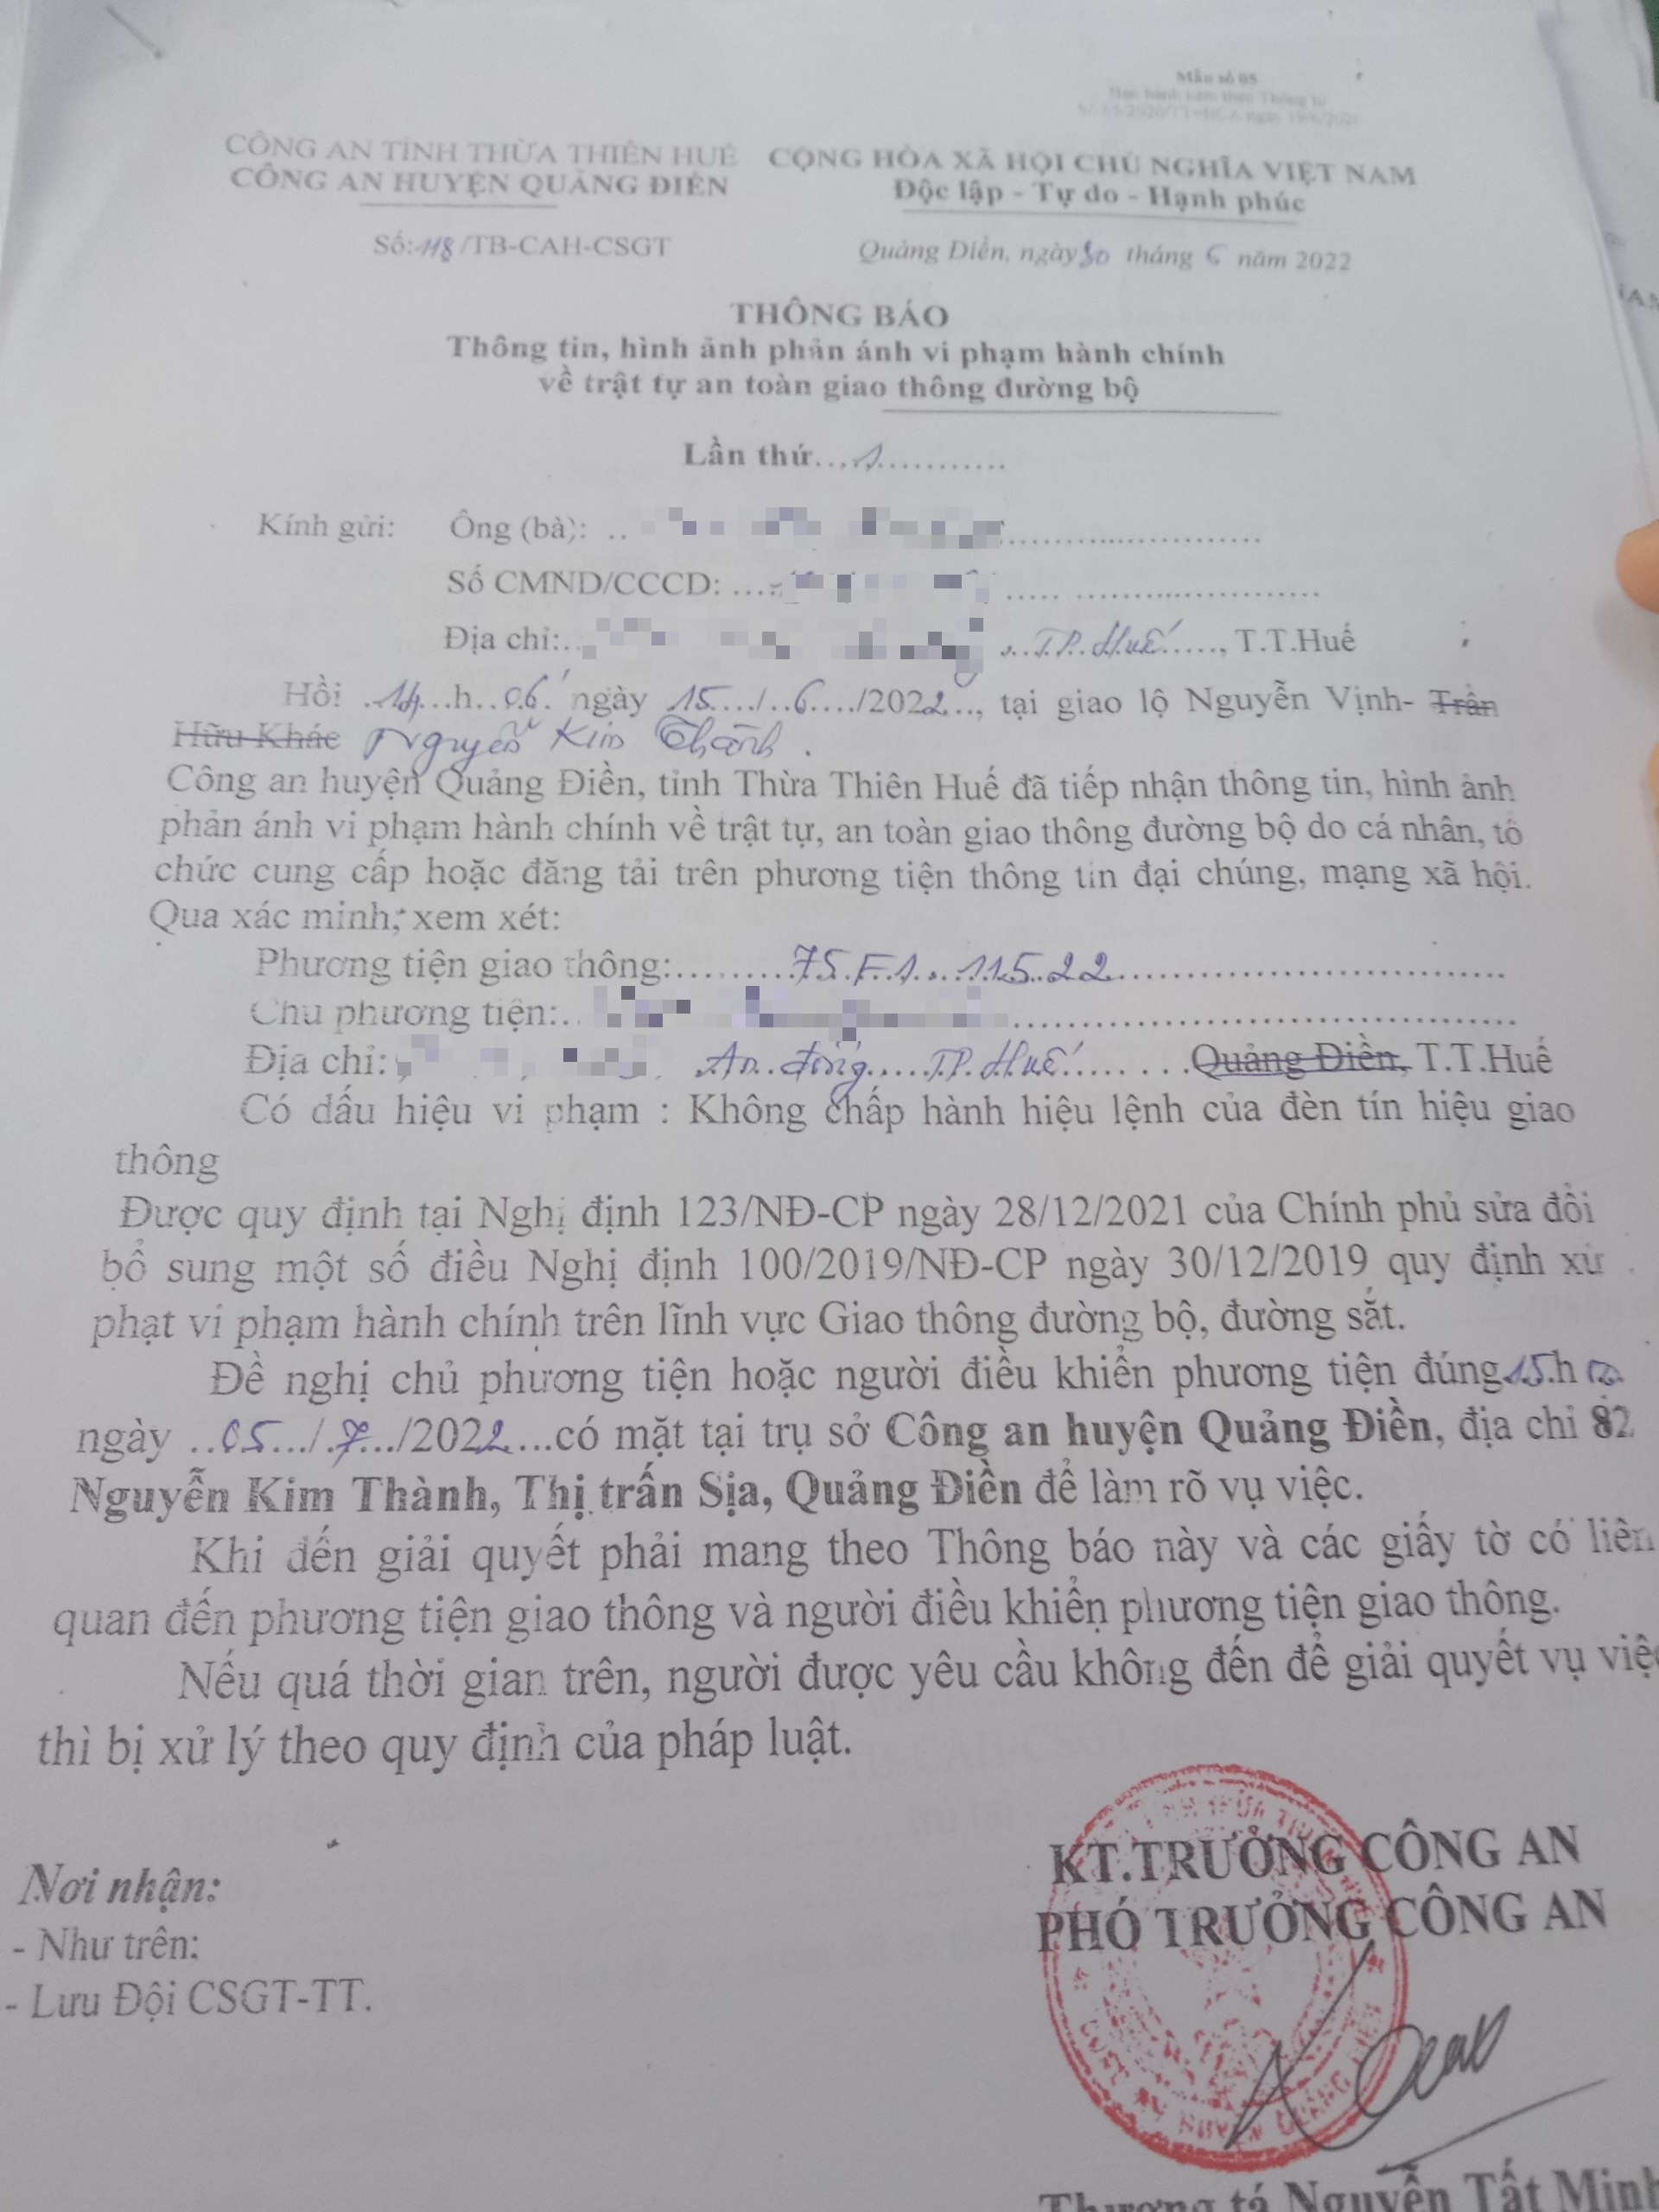 Mẫu số 05
Ban hành kèm theo Thông tư
số 65/2020/TT-BCA ngày 19/6/2020
CÔNG AN TỈNH THỪA THIÊN HUẾ CỘNG HÒA XÃ HỘI CHỦ NGHĨA VIỆT NAM
CÔNG AN HUYỆN QUẢNG ĐIỀN Độc lập - Tự do - Hạnh phúc
Số: 118/TB-CAH-CSGT Quảng Điền, ngày 30 tháng 6 năm 2022
THÔNG BÁO
Thông tin, hình ảnh phản ánh vi phạm hành chính
về trật tự an toàn giao thông đường bộ
Lần thứ....1...........
Kính gửi: Ông (bà): ..
Số CMND/CCCD: ....
Địa chỉ:.. ...TP. Huế....., T.T.Huế
Hồi .14...h..06.' ngày 15..../..6..../2022..., tại giao lộ Nguyễn Vịnh- Trần
Hữu Khác Nguyễn Kim Thành.
Công an huyện Quảng Điền, tỉnh Thừa Thiên Huế đã tiếp nhận thông tin, hình ảnh
phản ánh vi phạm hành chính về trật tự, an toàn giao thông đường bộ do cá nhân, tổ
chức cung cấp hoặc đăng tải trên phương tiện thông tin đại chúng, mạng xã hội.
Qua xác minh, xem xét:
Phương tiện giao thông:.........75.F1...115.22..................................
Chủ phương tiện:..
Địa chỉ: An đông.....TP. Huế...... . . .Quảng Điền, T.T.Huế
Có dấu hiệu vi phạm : Không chấp hành hiệu lệnh của đèn tín hiệu giao
thông
Được quy định tại Nghị định 123/NĐ-CP ngày 28/12/2021 của Chính phủ sửa đổi
bổ sung một số điều Nghị định 100/2019/NĐ-CP ngày 30/12/2019 quy định xử
phạt vi phạm hành chính trên lĩnh vực Giao thông đường bộ, đường sắt.
Đề nghị chủ phương tiện hoặc người điều khiển phương tiện đúng 15.h 00
ngày ..05.../.7.../2022....có mặt tại trụ sở Công an huyện Quảng Điền, địa chỉ 82
Nguyễn Kim Thành, Thị trấn Sịa, Quảng Điền để làm rõ vụ việc.
Khi đến giải quyết phải mang theo Thông báo này và các giấy tờ có liên
quan đến phương tiện giao thông và người điều khiển phương tiện giao thông.
Nếu quá thời gian trên, người được yêu cầu không đến để giải quyết vụ việc
thì bị xử lý theo quy định của pháp luật.
KT.TRƯỞNG CÔNG AN
PHÓ TRƯỞNG CÔNG AN
Nơi nhận:
- Như trên:
- Lưu Đội CSGT-TT.
Thượng tá Nguyễn Tất Minh